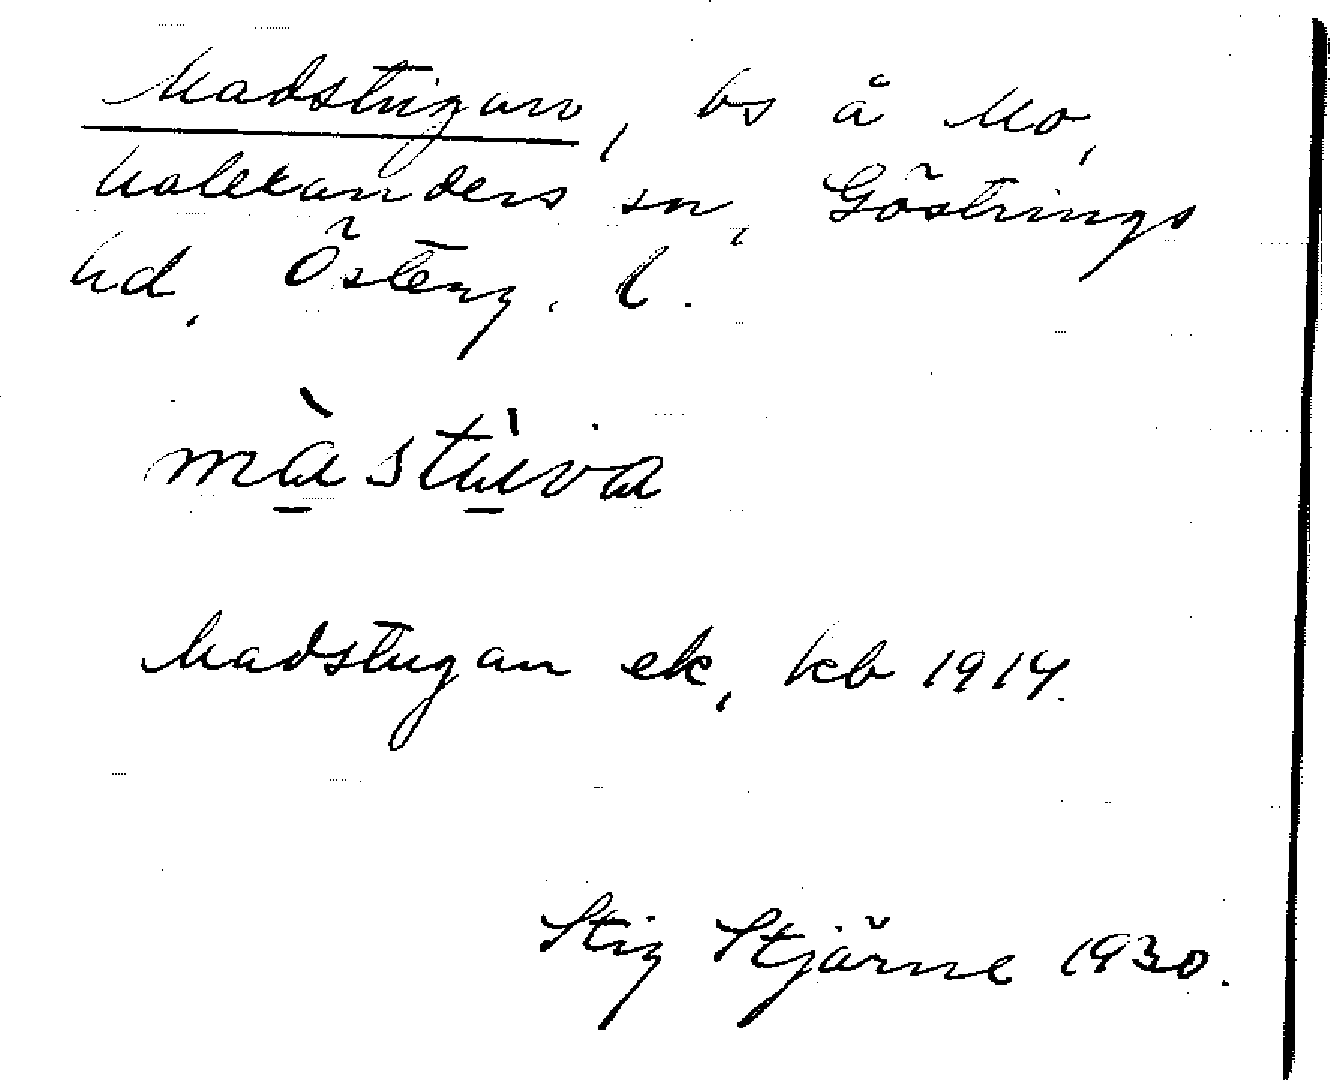 Madstugan, bs å Mo,
Malexanders sn, Göstrings
hd, Österg. l.
màstùva
Madstugan ek, kb 1914.
Stig Stjärne 1930.